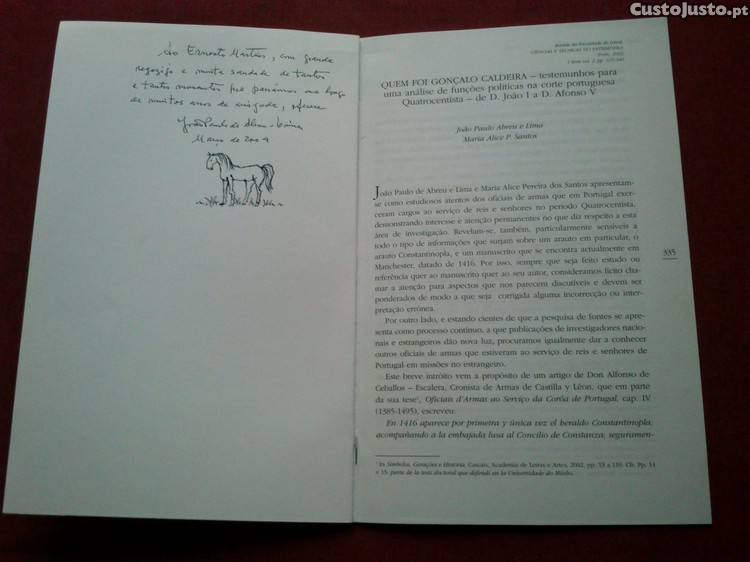 CustoJusto.pt
Ao Ernesto Martins, com grande
regozijo e muita saudade de tantos
e tantos momentos que passámos ao longo
de muitos anos de amizade, oferece
João Paulo de Abreu e Lima
Março de 2004
Revista da Faculdade de Letras
CIÊNCIAS E TÉCNICAS DO PATRIMÓNIO
Porto, 2003
I Série vol. 2, pp. 335-345
QUEM FOI GONÇALO CALDEIRA – testemunhos para
uma análise de funções políticas na corte portuguesa
Quatrocentista – de D. João I a D. Afonso V
João Paulo Abreu e Lima
Maria Alice P. Santos
João Paulo de Abreu e Lima e Maria Alice Pereira dos Santos apresentam-
se como estudiosos atentos dos oficiais de armas que em Portugal exer-
ceram cargos ao serviço de reis e senhores no período Quatrocentista,
demonstrando interesse e atenção permanentes no que diz respeito a esta
área de investigação. Revelam-se, também, particularmente sensíveis a
todo o tipo de informações que surjam sobre um arauto em particular, o
arauto Constantinopla, e um manuscrito que se encontra actualmente em
Manchester, datado de 1416. Por isso, sempre que seja feito estudo ou
referência quer ao manuscrito quer ao seu autor, consideramos lícito cha-
mar a atenção para aspectos que nos parecem discutíveis e devem ser
ponderados de modo a que seja corrigida alguma incorrecção ou inter-
pretação errónea.
335
Por outro lado, e estando cientes de que a pesquisa de fontes se apre-
senta como processo contínuo, a que publicações de investigadores nacio-
nais e estrangeiros dão nova luz, procuramos igualmente dar a conhecer
outros oficiais de armas que estiveram ao serviço de reis e senhores de
Portugal em missões no estrangeiro.
Este breve intróito vem a propósito de um artigo de Don Alfonso de
Ceballos – Escalera, Cronista de Armas de Castilla y Léon, que em parte
da sua tese¹, Oficiais d'Armas ao Serviço da Corôa de Portugal, cap. IV
(1385-1495), escreveu:
En 1416 aparece por primera y única vez el heraldo Constantinopla,
acompañando a la embajada lusa al Concilio de Constanza; seguramen-
¹ In Símbolos, Gerações e História, Cascais, Academia de Letras e Artes, 2002, pp. 33 a 110. Cfr. Pp. 34
e 35: parte de la tesis doctoral que defendí en la Universidade do Minho.